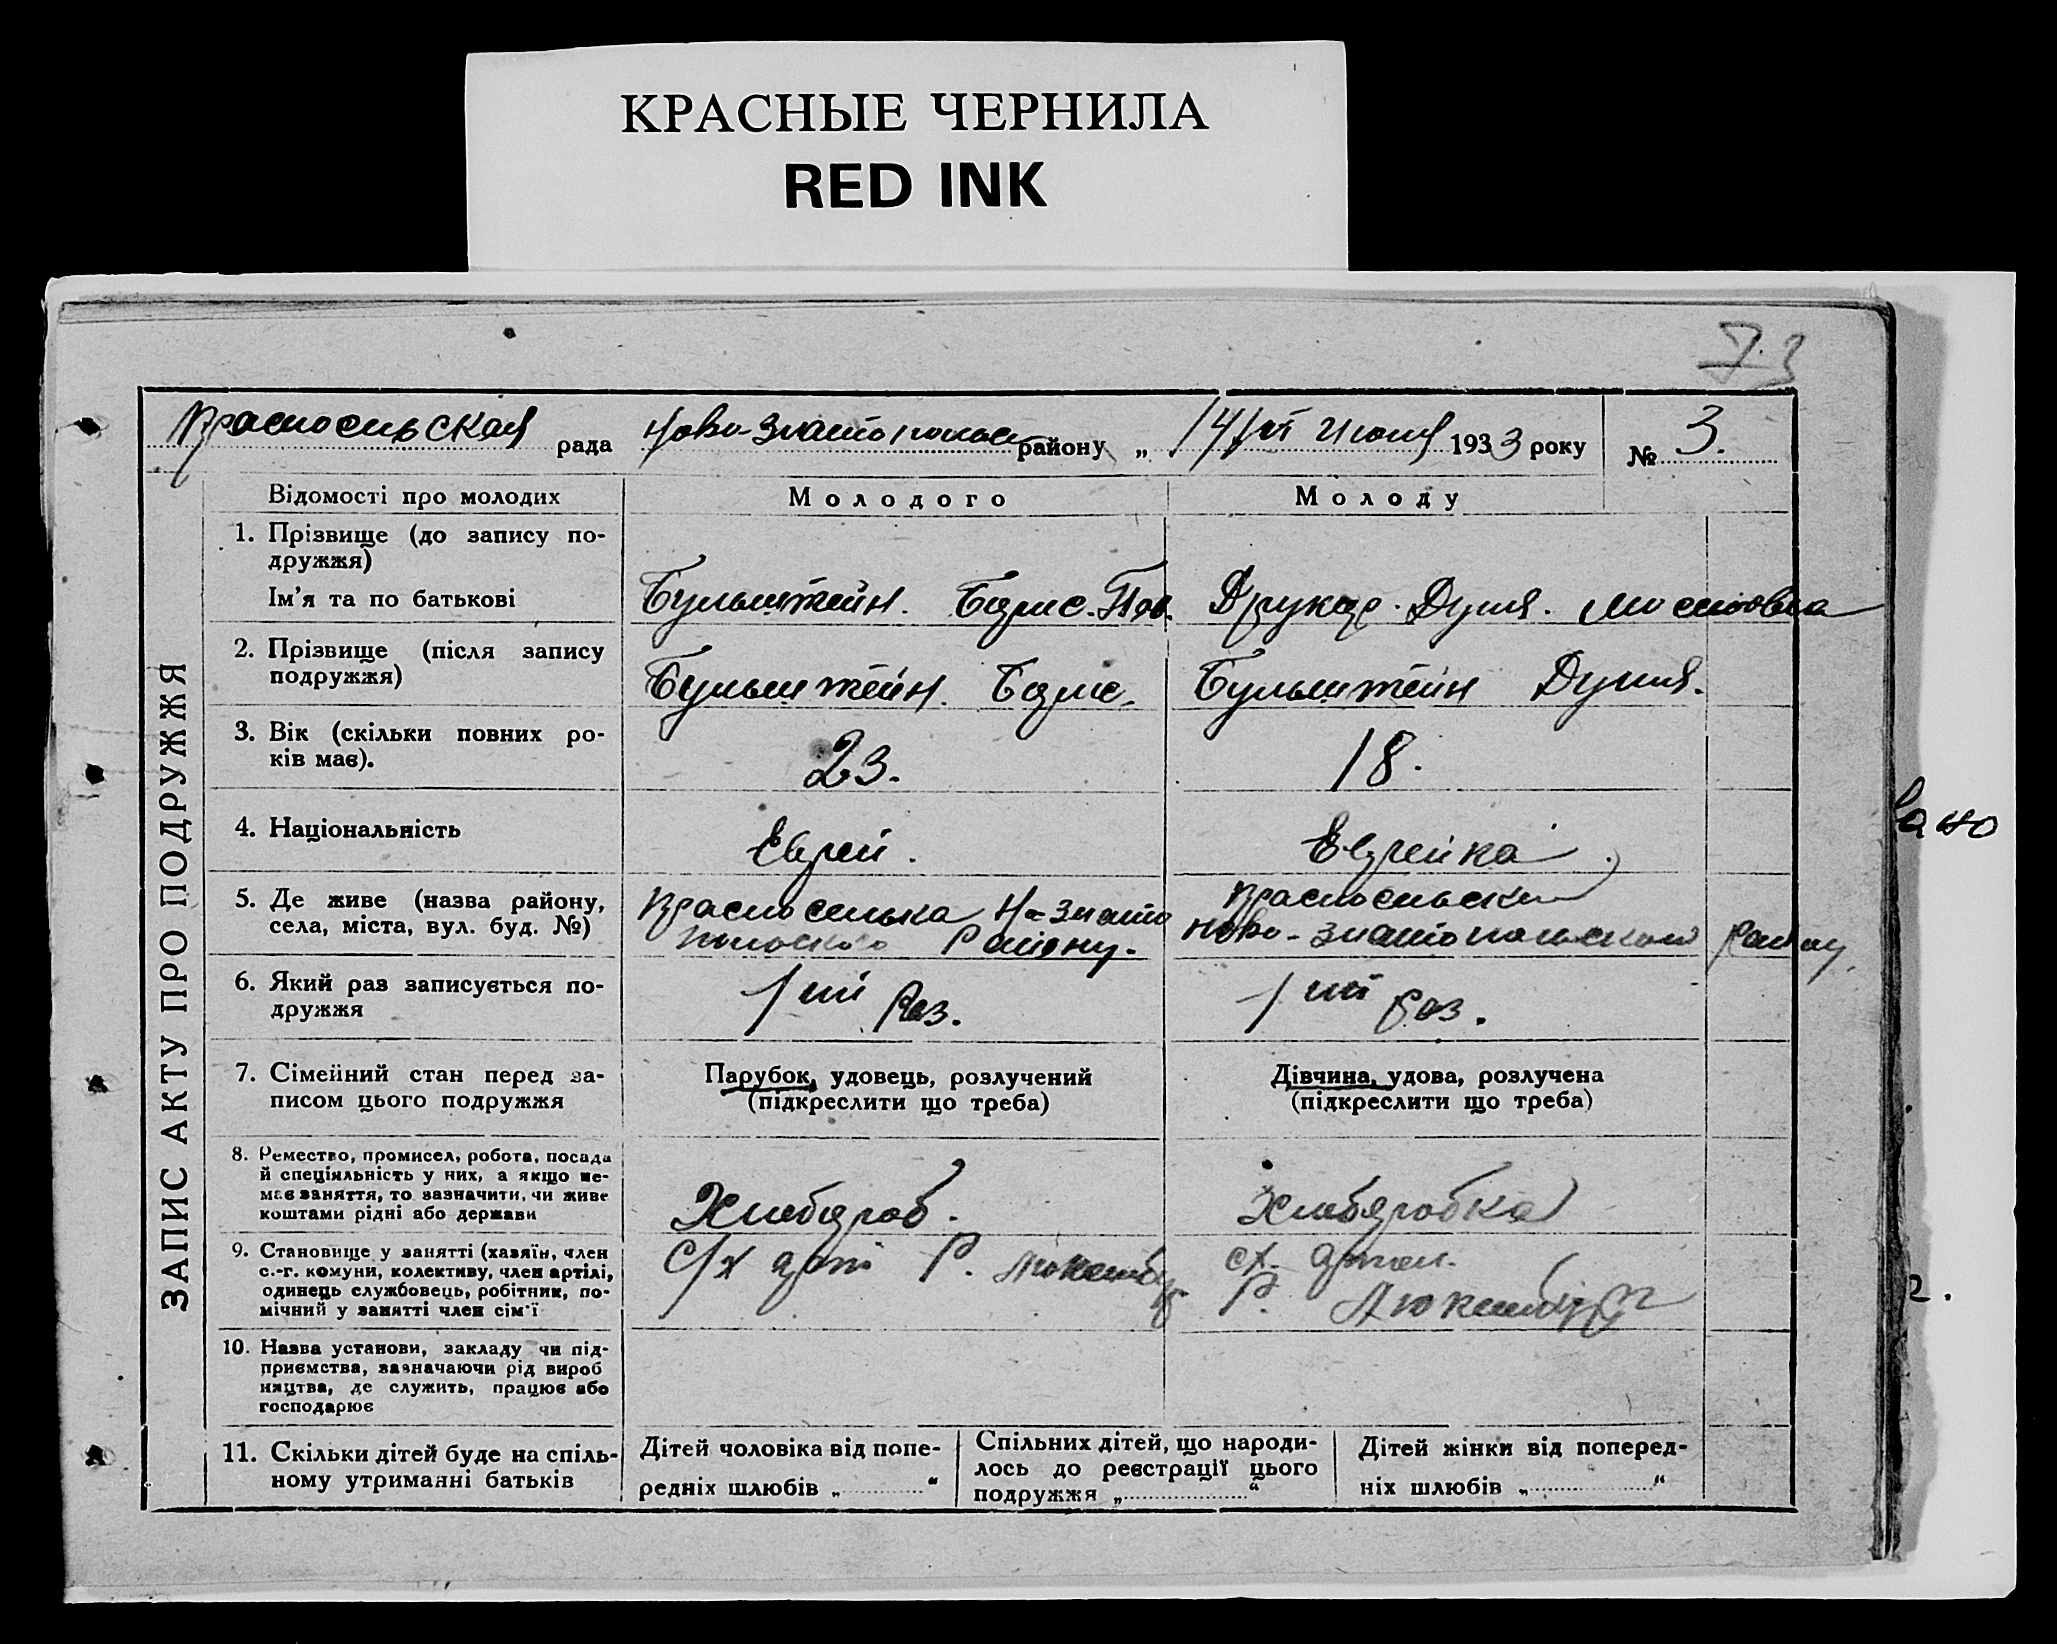 КРАСНЫЕ ЧЕРНИЛА
RED INK
73
Красносельская рада Ново-Златопольс району „ 14/VI Июня 1933 року № 3.
ЗАПИС АКТУ ПРО ПОДРУЖЖЯ
Відомості про молодих
Молодого
Молоду
1. Прізвище (до запису по-
дружжя)
Ім'я та по батькові
Бульштейн. Борис. Пав.
Друкар. Дуня. Моисеовна
2. Прізвище (після запису
подружжя)
Бульштейн. Борис.
Бульштейн Дуня.
3. Вік (скільки повних ро-
ків має).
23.
18.
4. Національність
Еврей.
Еврейка
5. Де живе (назва району,
села, міста, вул. буд. №)
Красноселька Н-Злато
польского Району.
Красносельский
Ново-Златопольском району
6. Який раз записується по-
дружжя
1ий Раз.
1ий раз.
7. Сімейний стан перед за-
писом цього подружжя
Парубок, удовець, розлучений
(підкреслити що треба)
Дівчина, удова, розлучена
(підкреслити що треба)
8. Ремество, промисел, робота, посада
й спеціяльність у них, а якщо не-
має заняття, то зазначити, чи живе
коштами рідні або держави
Хлебороб.
Хлеборобка
9. Становище у занятті (хазяїн, член
с.-г. комуни, колективу, член артілі,
одинець службовець, робітник, по-
мічний у занятті член сім'ї
С/х арт Р. Люксембур
сх. артел.
Р. Люксембург
10. Назва установи, закладу чи під-
приємства, зазначаючи рід вироб
ництва, де служить, працює або
господарює
11. Скільки дітей буде на спіль-
ному утриманні батьків
Дітей чоловіка від попе-
редніх шлюбів „ “
Спільних дітей, що народи-
лось до реєстрації цього
подружжя „ “
Дітей жінки від поперед-
ніх шлюбів „ “